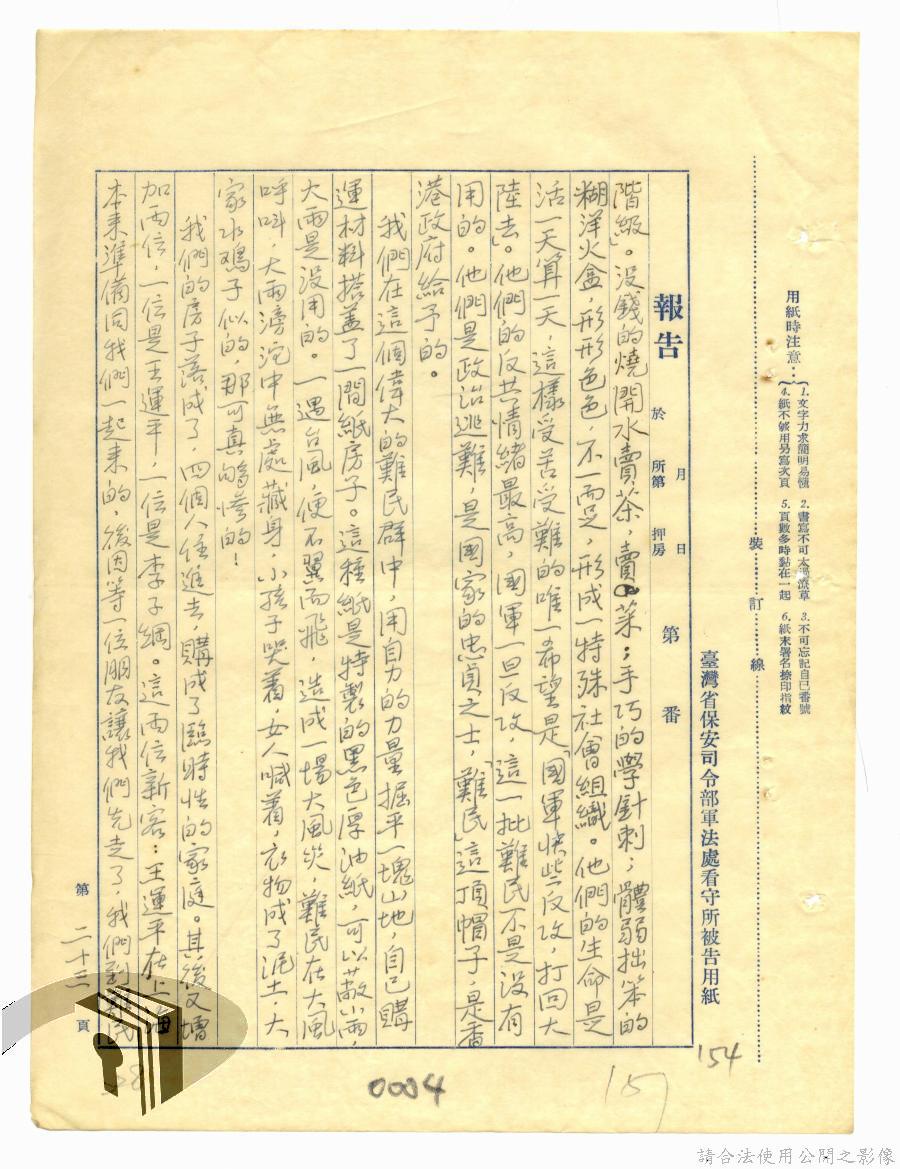 用紙時注意：
1. 文字力求簡明易懂 2. 書寫不可太過潦草 3. 不可忘記自己番號
4. 紙不够用另寫次頁 5. 頁數多時黏在一起 6. 紙末署名捺印指紋
裝訂線
臺灣省保安司令部軍法處看守所被告用紙
報告 於 月 日
所第 押房 第 番
階級」。没錢的燒開水賣茶，賣菜；手巧的學針刺；體弱拙笨的
糊洋火盒，形形色色，不一而足，形成一特殊社會組織。他們的生命是
活一天算一天，這樣受苦受難的唯一希望是「國軍快些反攻，打回大
陸去」。他們的反共情緒最高，國軍一旦反攻，這一批難民不是没有
用的。他們是政治逃難，是國家的忠貞之士，「難民」這頂帽子，是香
港政府給予的。
我們在這個偉大的難民群中，用自力的力量掘平一塊山地，自己購
運材料搭蓋了一間紙房子。這種紙是特製的黑色厚油紙，可以蔽小雨，
大雨是没用的。一遇台風，便不翼而飛，造成一場大風災，難民在大風
呼叫，大雨滂沱中無處藏身，小孩子哭着，女人喊着，衣物成了泥土，大
家水鸡子似的，那可真的够慘的！
我們的房子落成了，四個人住進去，購成了臨時性的家庭。其後又增
加两位，一位是王運平，一位是李子綱。這两位新客：王運平在上海
本来準備同我們一起来的，後因等一位朋友讓我們先走了，我們到難民
第 二十三 頁
154
0004
157
請合法使用公開之影像